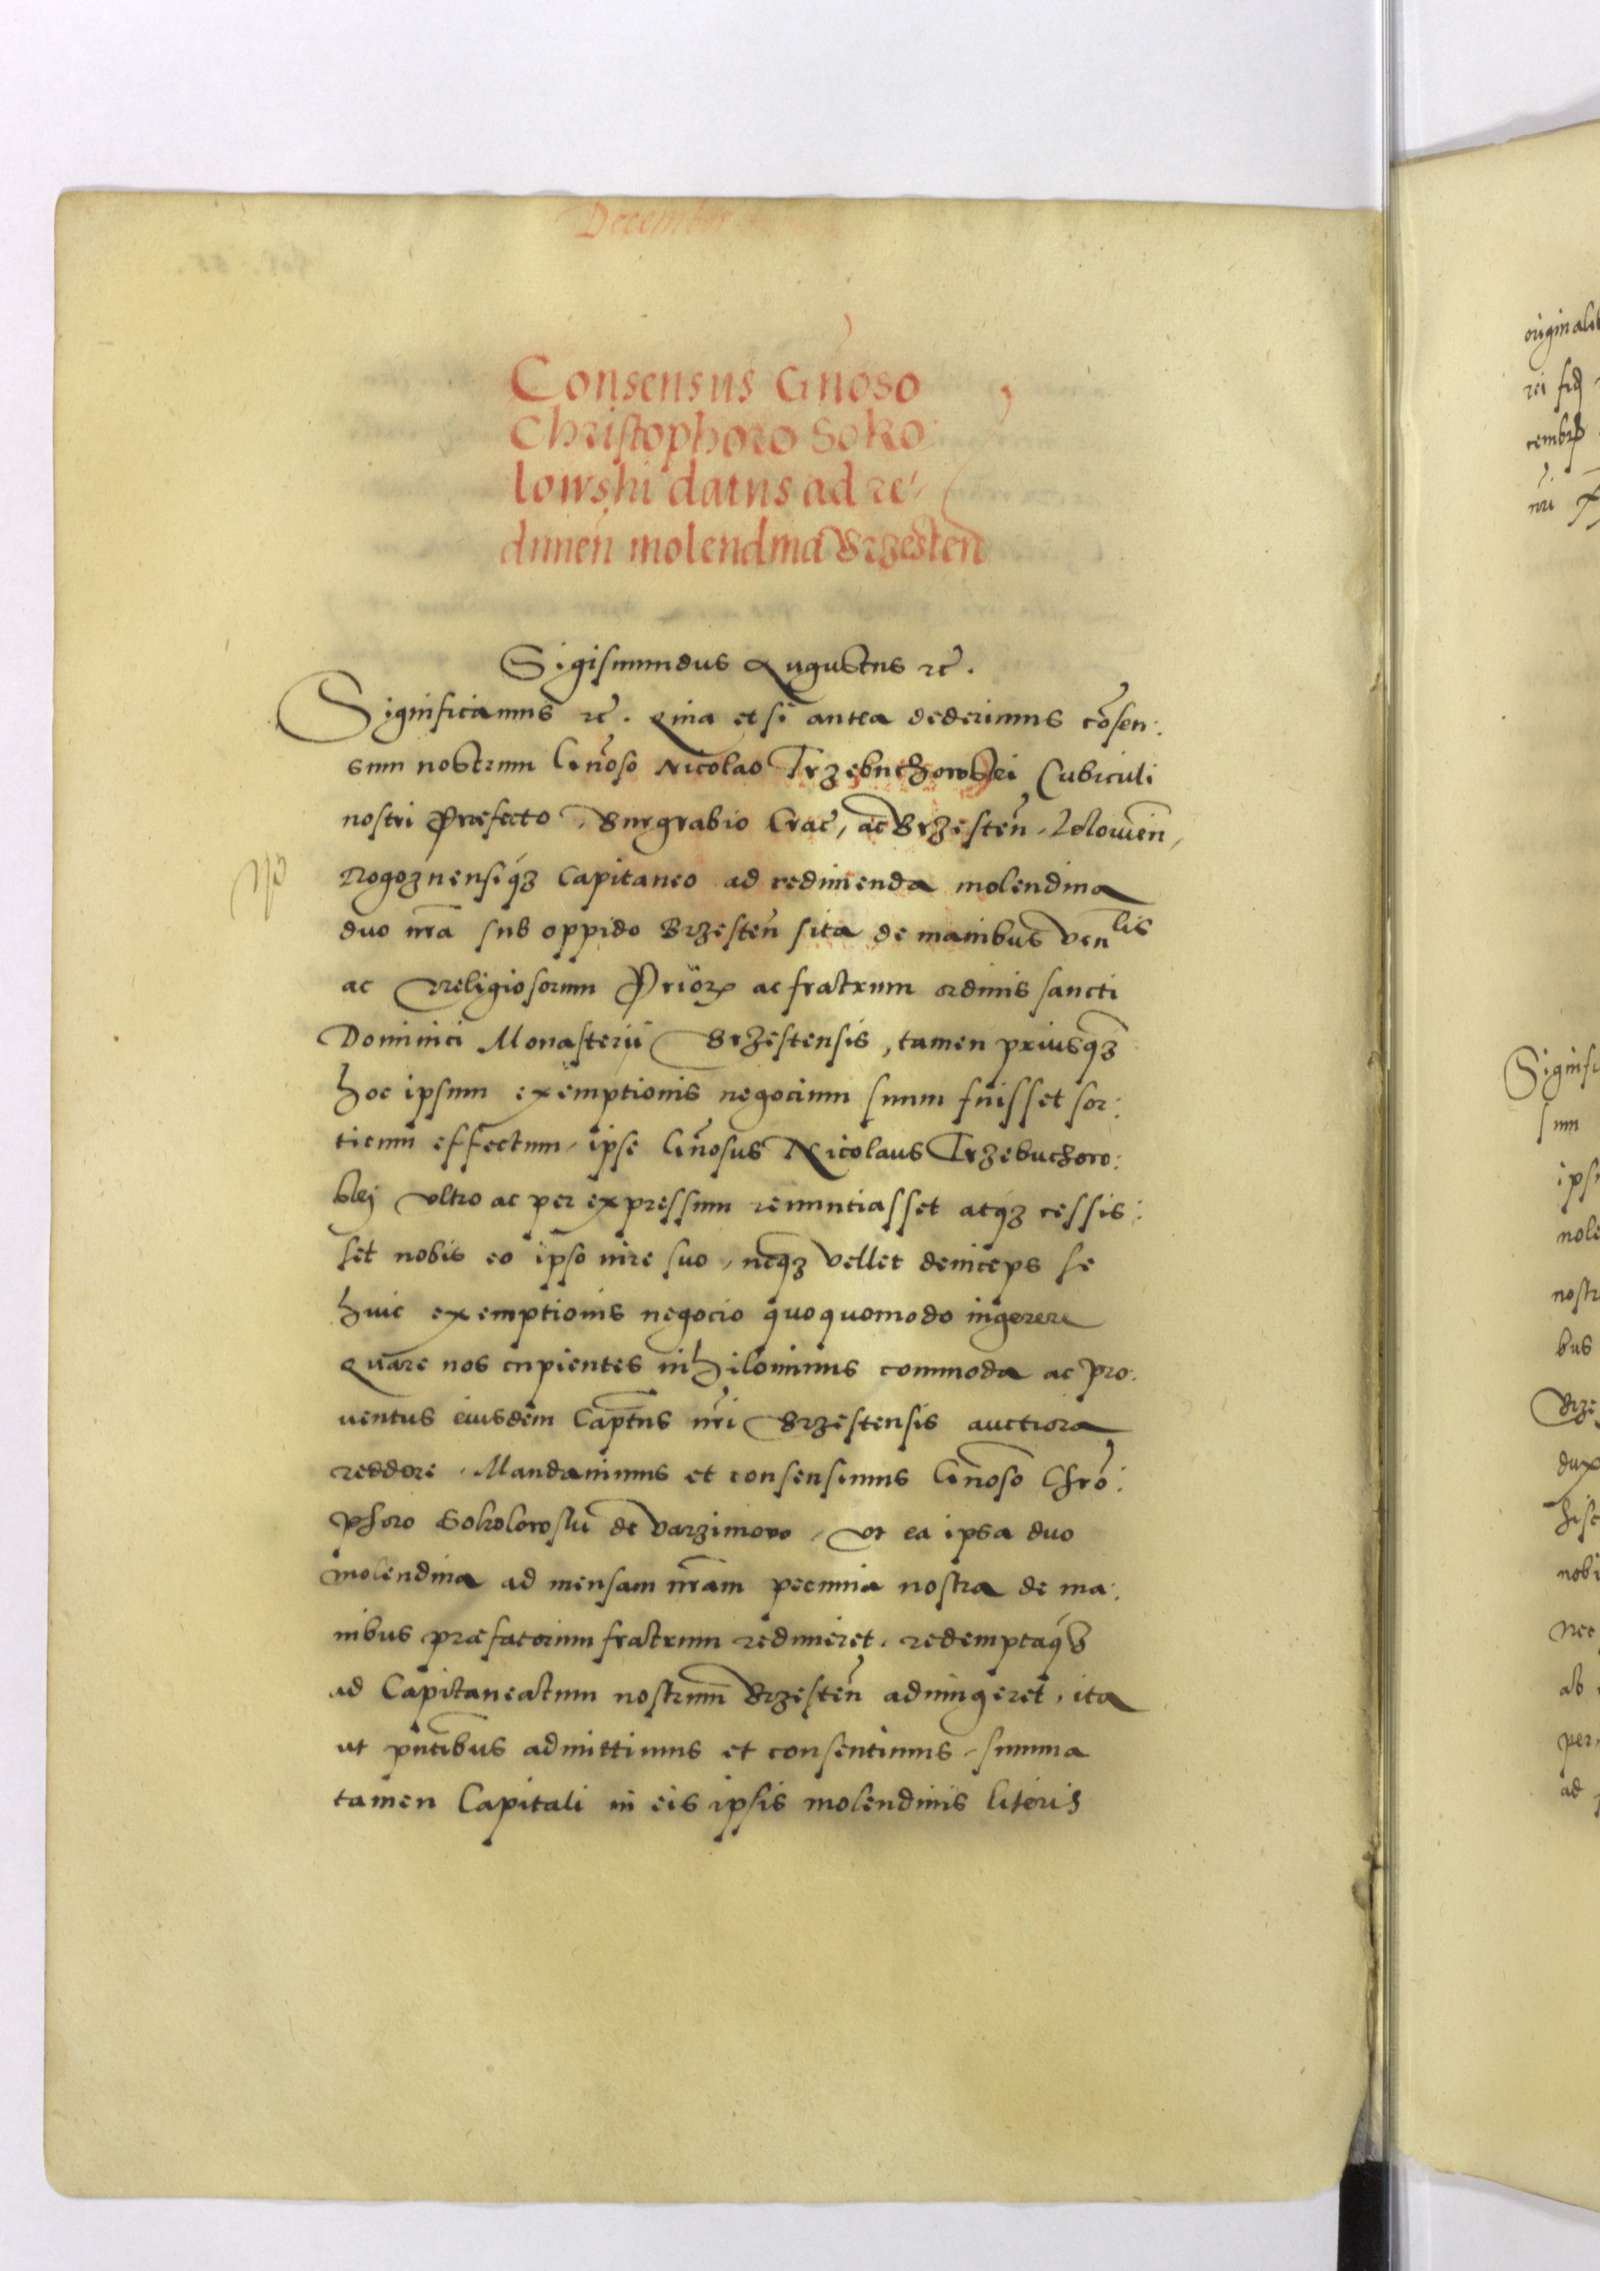 December
Consensus Gnoso
Christophoro Soko
lowski datus ad re
dimen molendina Brzesten
Sigismundus Augustus rc.
Significamus rc. Quia etsi antea dederimus cõsen:
sum nostrum Gñoso Nicolao Trzebuchowskj Cubiculi
nostri Præfecto, Burgrabio Crac, ac Brzesteñ, Lelowieñ,
Rogoznensiqz Capitaneo ad redimenda molendina
duo nr̃a sub oppido Brzesteñ sita de manibus Ven lis
ac Religiosorum Prior ac fratrum ordinis sancti
Dominici Monasterii Brzestensis, tamen priusqz
hoc ipsum exemptionis negocium suum fuisset sor:
titum effectum, ipse Gñosus Nicolaus Trzebuchow:
skj vltro ac per expressum renuntiasset atqz cessis:
set nobis eo ipso iure suo, neqz vellet deinceps se
huic exemptionis negocio quoquomodo ingerere
Quare nos cupientes nihilominus commoda ac pro:
uentus eiusdem Capt̃us nr̃i Brzestensis auctiora
reddere, Mandauimus et consensimus Gñoso Chrõ:
phoro Sokolowski de Varzimowo, vt ea ipsa duo
molendina ad mensam nr̃am pecunia nostra de ma:
nibus præfatorum fratrum redimeret, redemptaqz
ad Capitaneatum nostrum Brzesteñ adiungeret, ita
ut pñtibus admittimus et consentimus, summa
tamen Capitali in eis ipsis molendinis literis
originalib
rei
nri
Signifi
sum
ips
mole
nostr
bus
Brze
dux
hisc
nobi
Nec
ab
per
ad